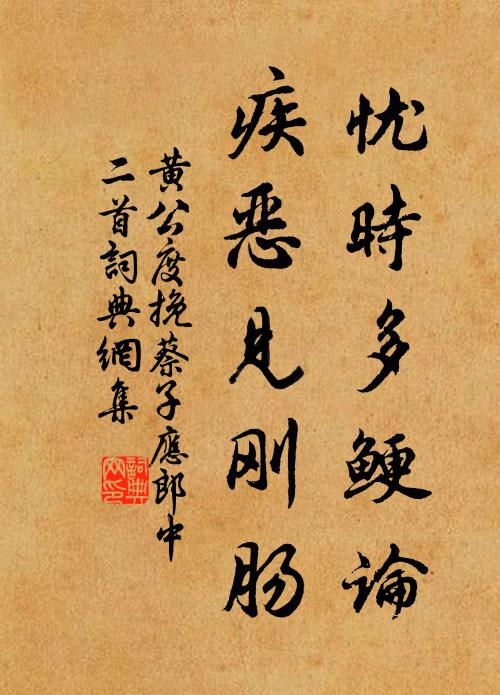 忧時多鲠論
疾恶見刚肠
黄公度挽蔡子應郎中
二首詞典網集
詞典網印